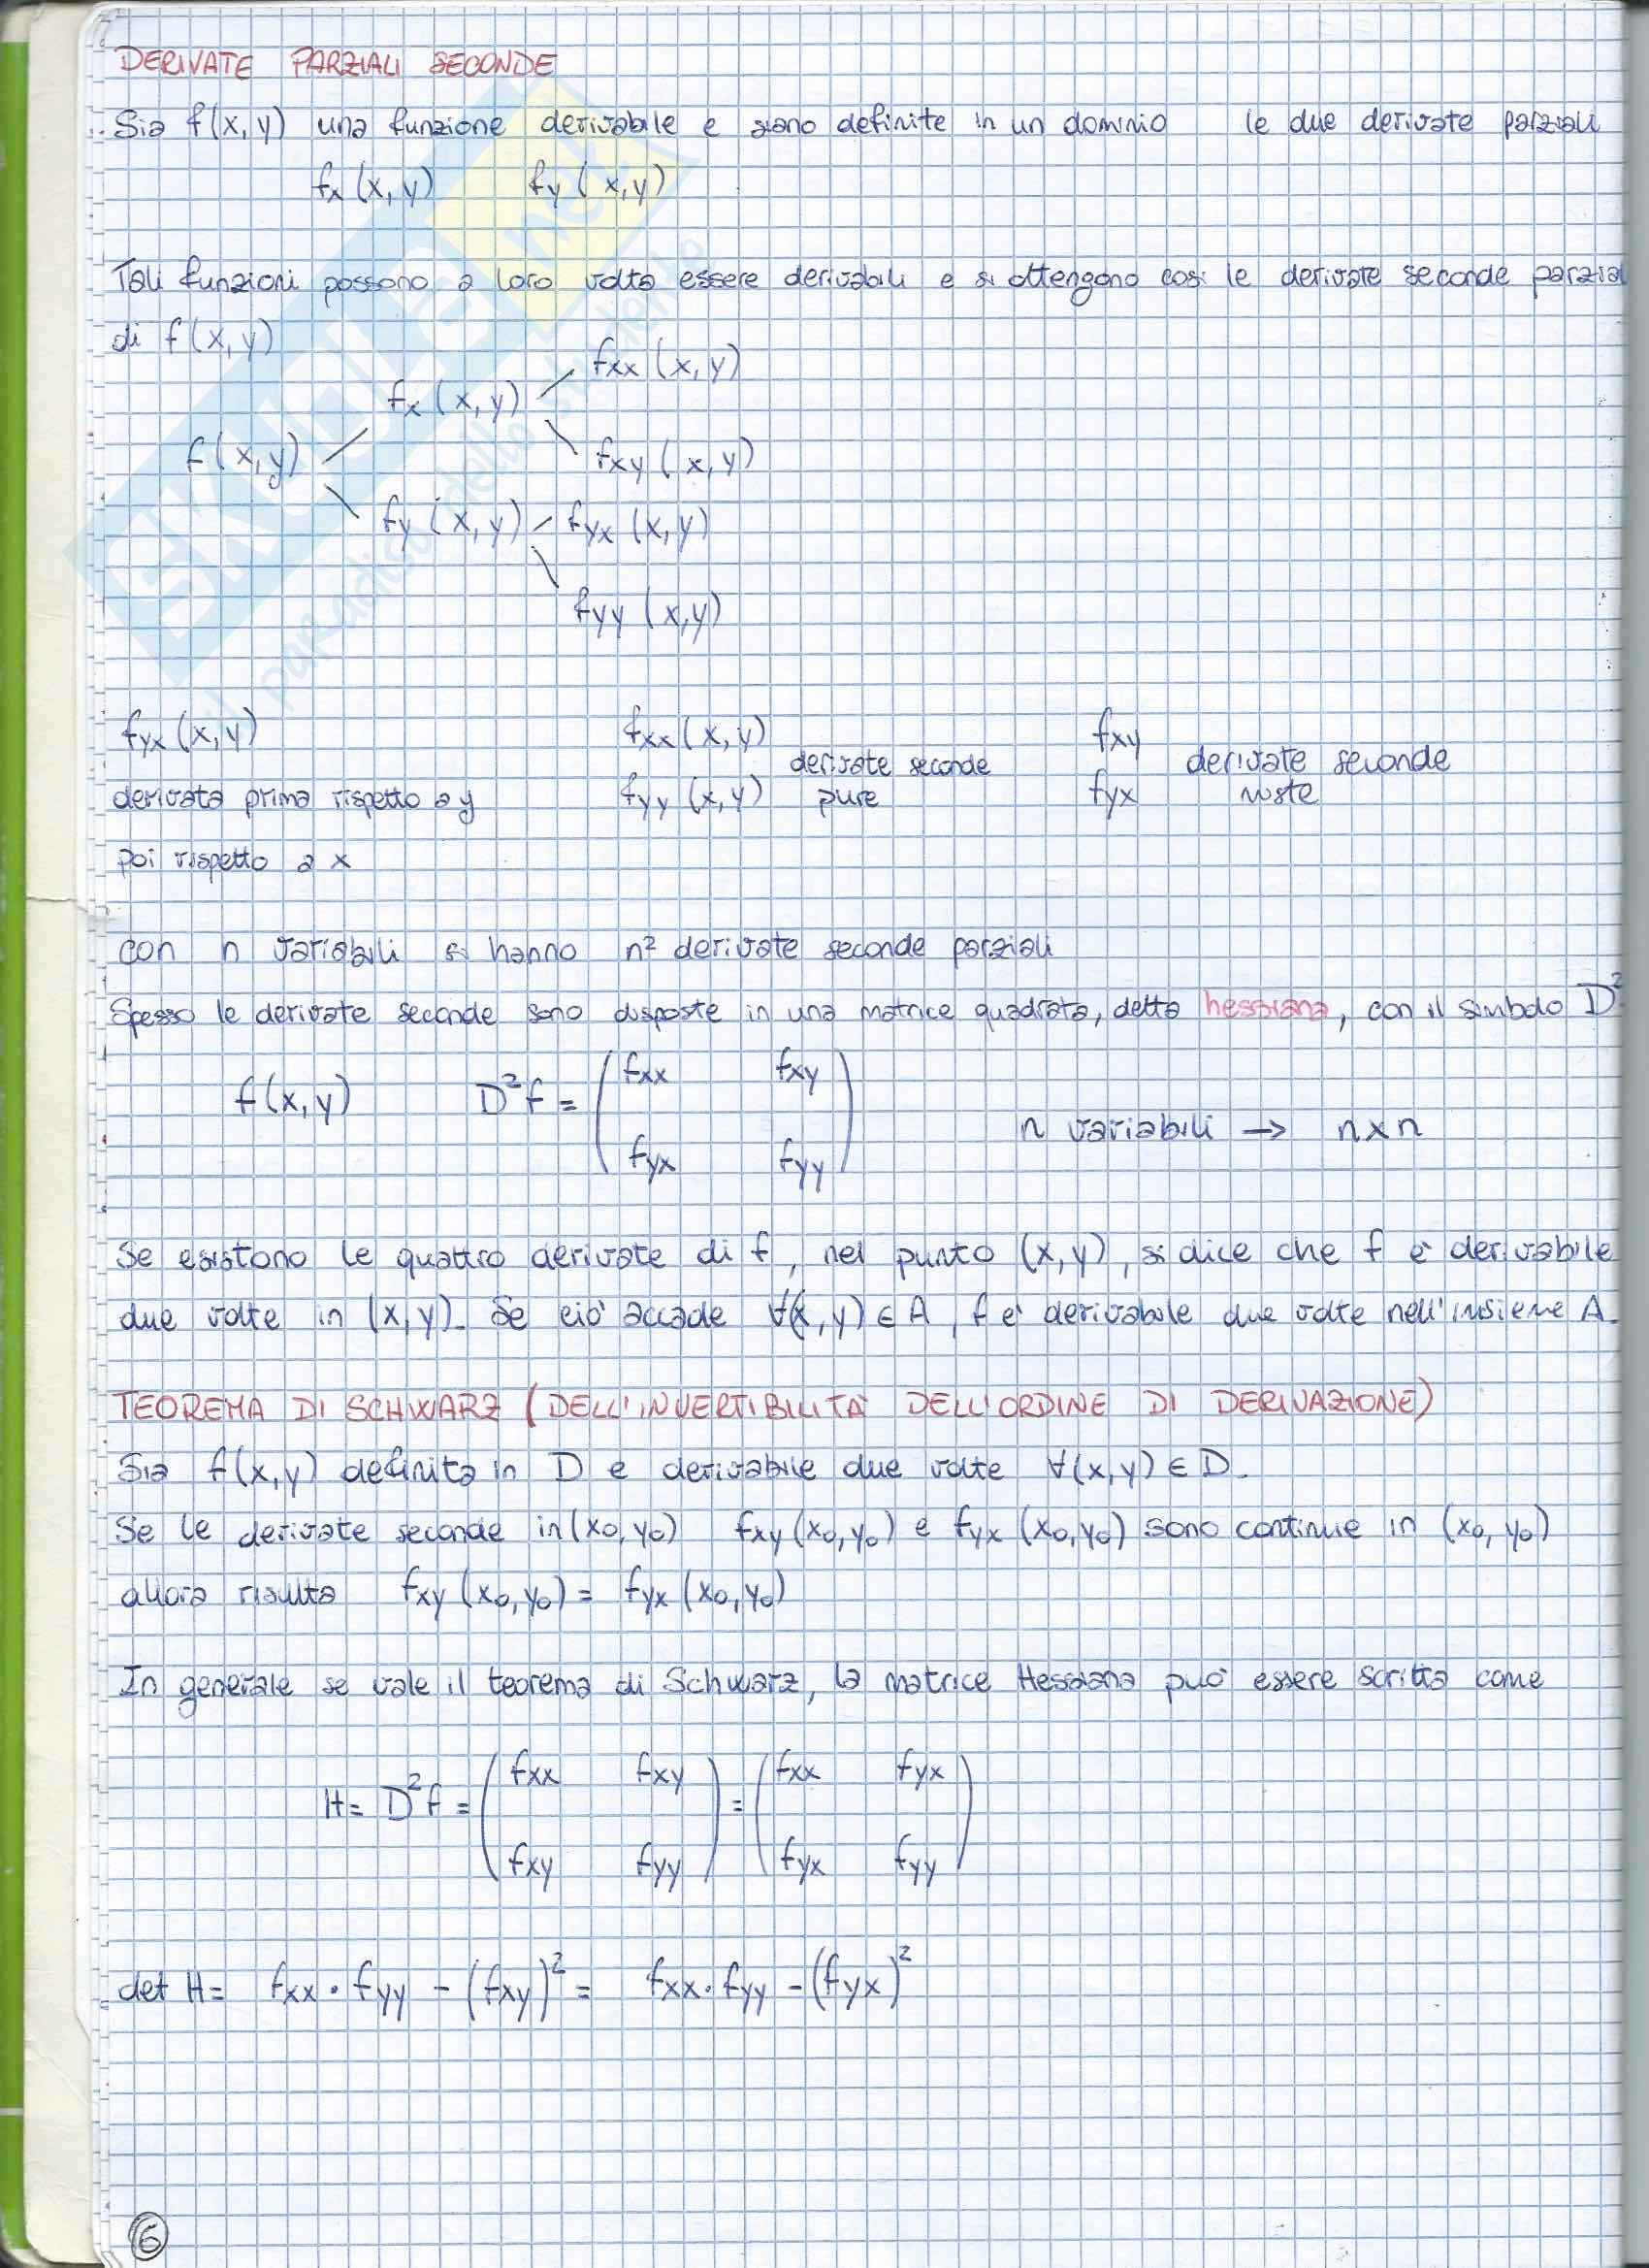 DERIVATE PARZIALI SECONDE
Sia f(x,y) una funzione derivabile e siano definite in un dominio le due derivate parziali
fx(x,y) fy(x,y)
Tali funzioni possono a loro volta essere derivabili e si ottengono così le derivate seconde parzial
di f(x,y)
fxx(x,y)
fx(x,y)
f(x,y)
fxy(x,y)
fy(x,y) fyx(x,y)
fyy(x,y)
fyx(x,y) fxx(x,y) fxy
derivate seconde derivate seconde
derivata prima rispetto a y fyy(x,y) pure fyx miste
poi rispetto a x
con n variabili si hanno n² derivate seconde parziali
Spesso le derivate seconde sono disposte in una matrice quadrata, detta hessiana, con il simbolo D²
fxx fxy
f(x,y) D²f =
n variabili → n×n
fyx fyy
Se esistono le quattro derivate di f, nel punto (x,y), si dice che f è derivabile
due volte in (x,y). Se ciò accade ∀(x,y) ∈ A, f è derivabile due volte nell'insieme A.
TEOREMA DI SCHWARZ (DELL'INVERTIBILITÀ DELL'ORDINE DI DERIVAZIONE)
Sia f(x,y) definita in D e derivabile due volte ∀(x,y) ∈ D.
Se le derivate seconde in (x0,y0) fxy(x0,y0) e fyx(x0,y0) sono continue in (x0,y0)
allora risulta fxy(x0,y0) = fyx(x0,y0)
In generale se vale il teorema di Schwarz, la matrice Hessiana può essere scritta come
fxx fxy fxx fyx
H = D²f = =
fxy fyy fyx fyy
det H = fxx · fyy - (fxy)² = fxx · fyy - (fyx)²
6
SKUOLA.net
il paradiso dello studente